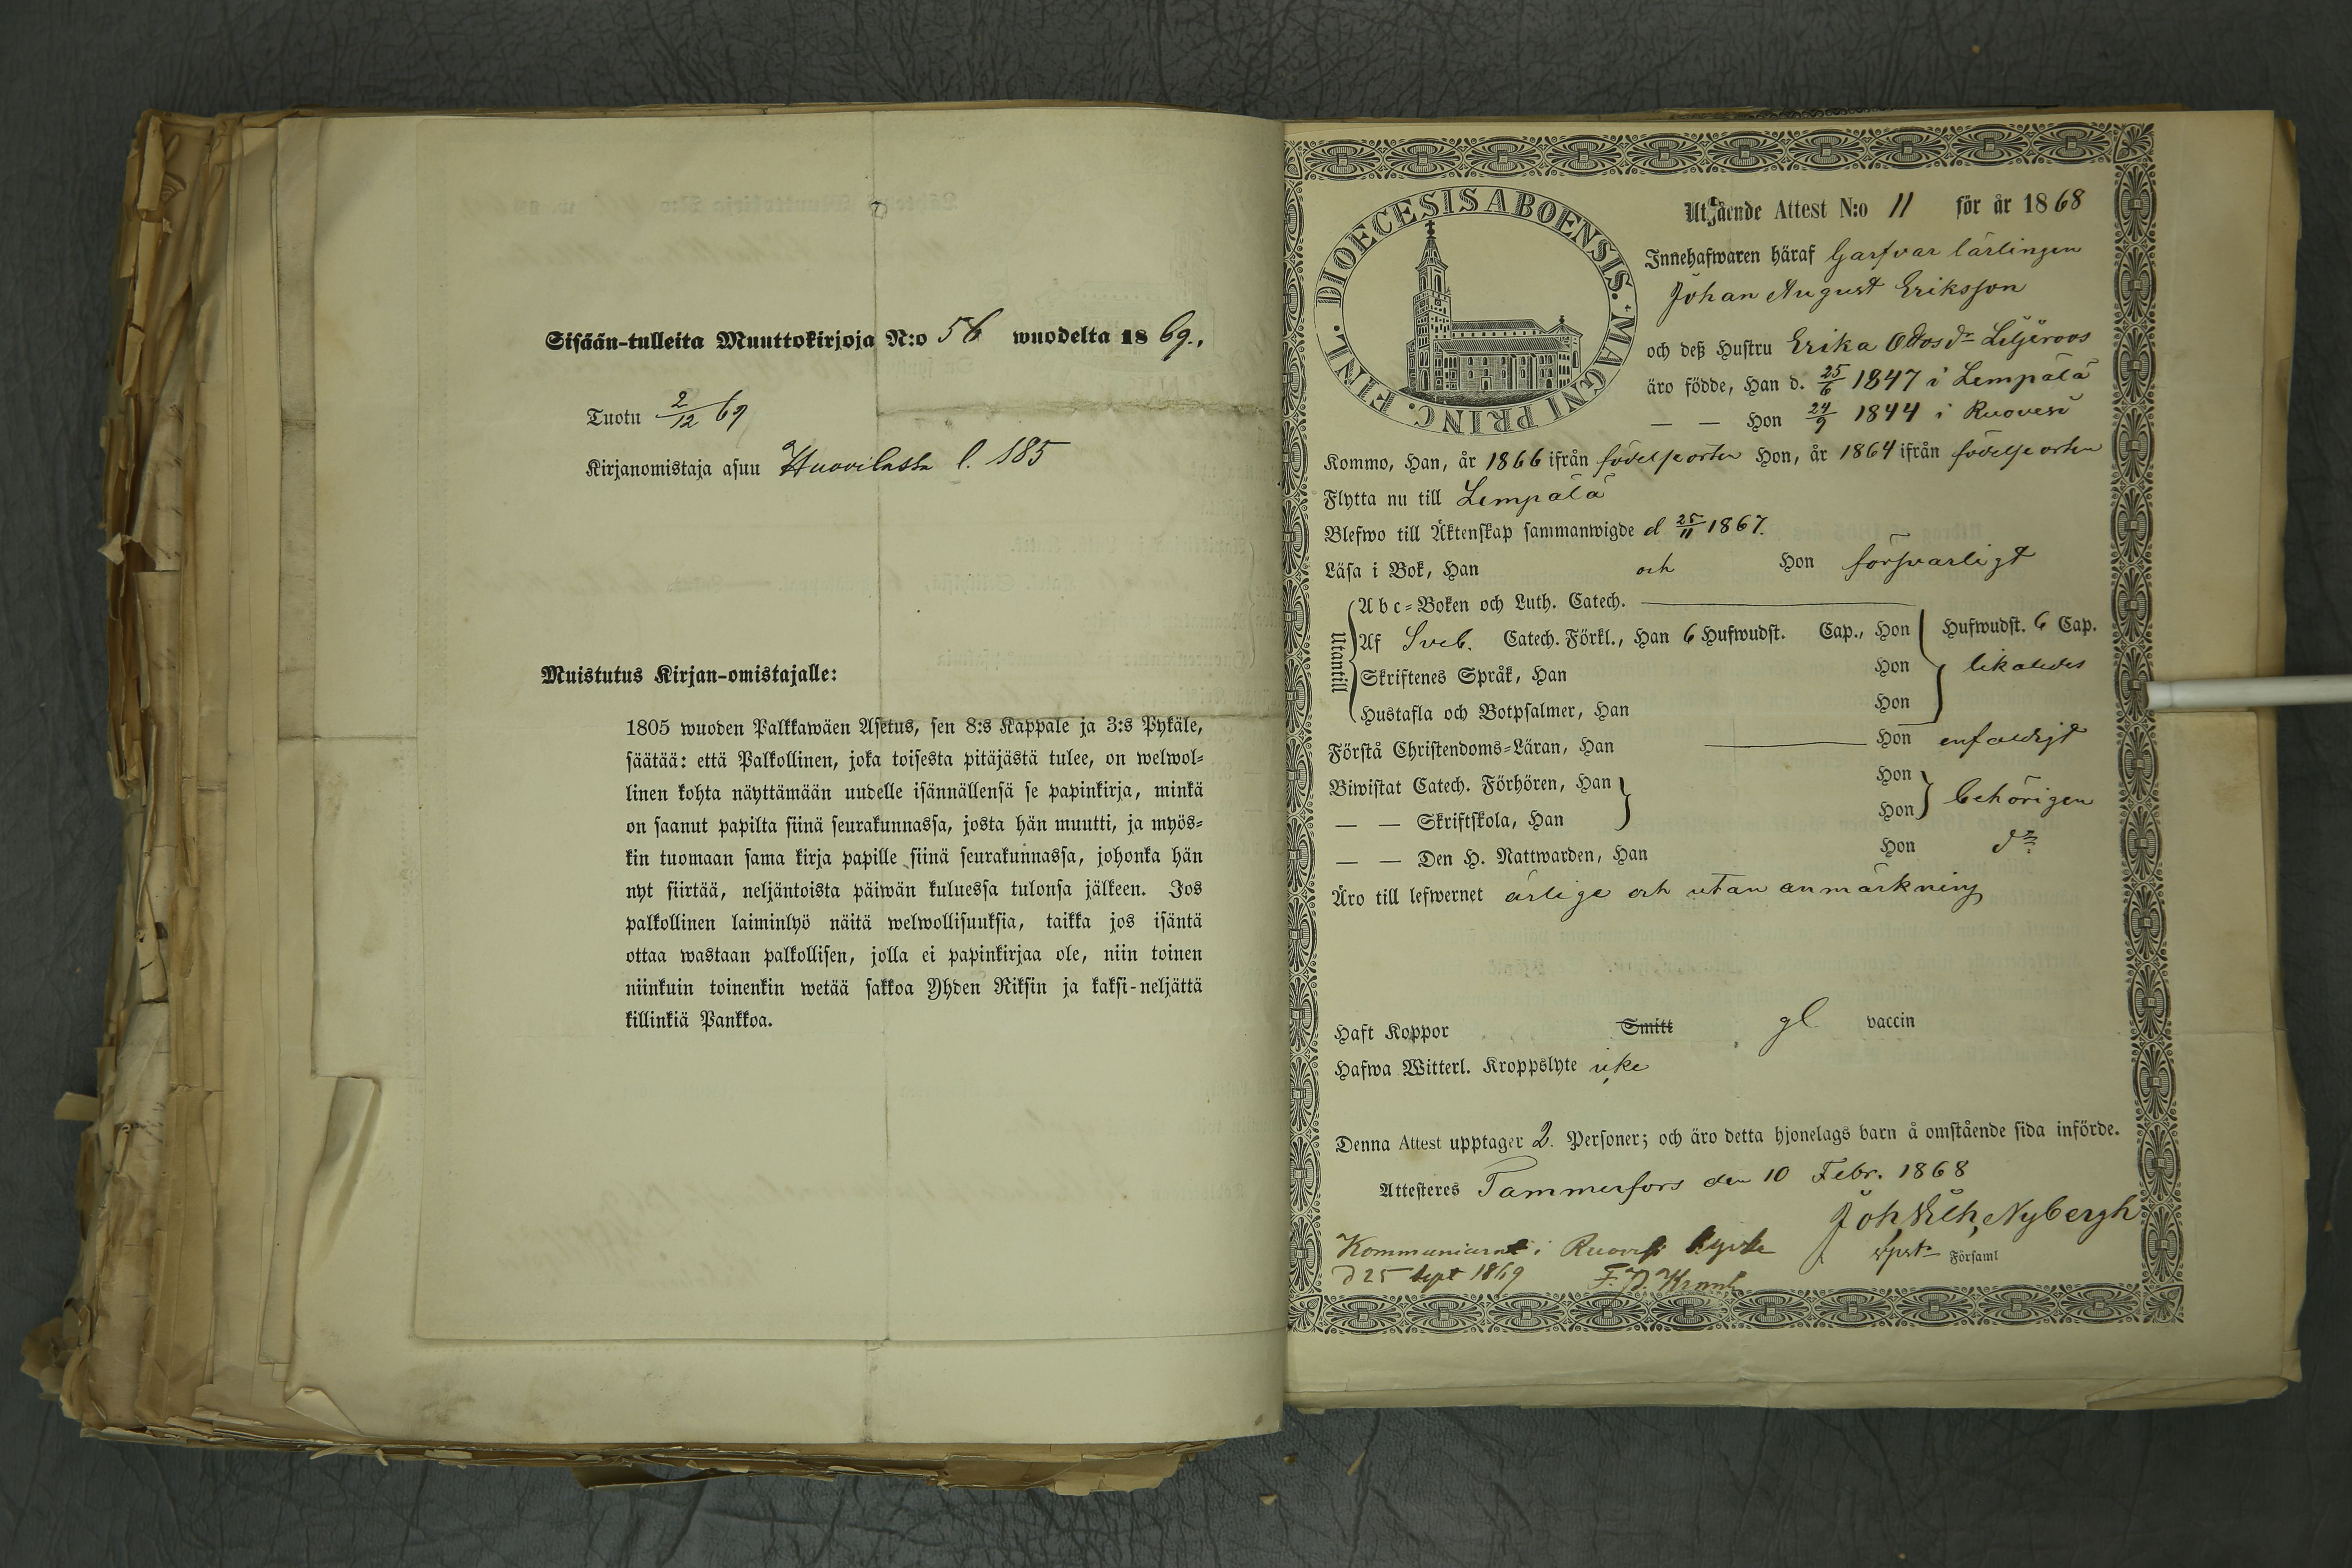 Sisään-tulleita Muuttokirjoja N:o 56 wuodelta 1869.,
Tuotu 2/12 69
Kirjanomistaja asuu Huovilassa l. 185
Muistutus Kirjan-omistajalle:
1805 wuoden Palkkawäen Asetus, sen 8:s Kappale ja 3:s Pykäle,
säätää: että Palkollinen, joka toisesta pitäjästä tulee, on welwol-
linen kohta näyttämään uudelle isännällensä se papinkirja, minkä
on saanut papilta siinä seurakunnassa, josta hän muutti, ja myös-
kin tuomaan sama kirja papille siinä seurakunnassa, johonka hän
nyt siirtää, neljäntoista päiwän kuluessa tulonsa jälkeen. Jos
palkollinen laiminlyö näitä welwollisuuksia, taikka jos isäntä
ottaa wastaan palkollisen, jolla ei papinkirjaa ole, niin toinen
niinkuin toinenkin wetää sakkoa Yhden Riksin ja kaksi-neljättä
killinkiä Pankkoa.
DIOECESIS ABOENSIS. MAGNI PRINC. FINL.
Utgående Attest N:o 11 för år 1868
Innehafwaren häraf Garfvar lärlingen
Johan August Eriksson
och deß Hustru Erika Ottosdr Liljeroos
äro födde, Han d. 25/6 1847 i Lempälä
— — Hon 24/9 1844 i Ruovesi
Kommo, Han, år 1866 ifrån födelseorten Hon, år 1864 ifrån födelseorten
Flytta nu till Lempälä
Blefwo till Äktenskap sammanwigde d 25/11 1867.
Läsa i Bok, Han och Hon försvarligt
Utantill
Abc-Boken och Luth. Catech.
Af Sveb. Catech. Förkl., Han 6 Hufwudst. Cap., Hon Hufwudst. 6 Cap.
Skriftenes Språk, Han Hon likaledes
Hustafla och Botpsalmer, Han Hon
Förstå Christendoms-Läran, Han Hon enfaldigt
Biwistat Catech. Förhören, Han Hon
— — Skriftskola, Han Hon behörigen
— — Den H. Nattwarden, Han Hon do
Äro till lefwernet ärlige och utan anmärkning
Haft Koppor Smitt gl vaccin
Hafwa Witterl. Kroppslyte icke
Denna Attest upptager 2. Personer; och äro detta hjonelags barn å omstående sida införde.
Attesteres Tammerfors den 10 Febr. 1868
Joh. Vilh. Nybergh
Församl
Kommunicerat i Ruovesi kyrka
d 25 Sept 1869